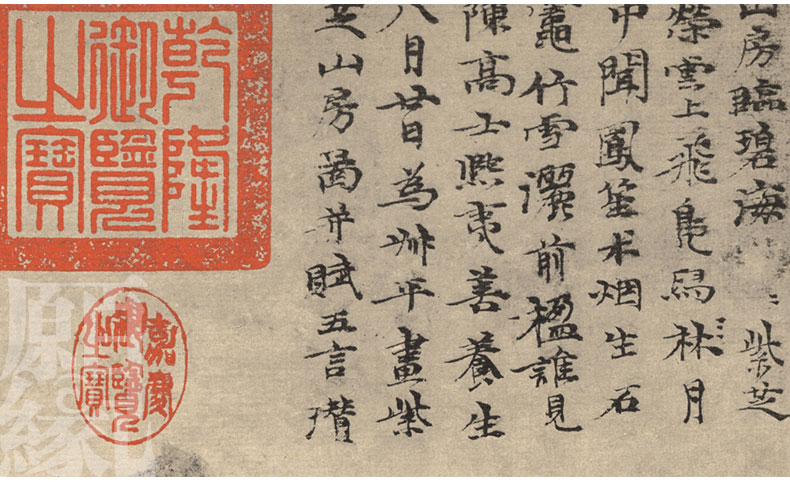 山房臨碧海紫芝
榮雲上飛鳧舄林月
中聞鳳笙朮烟生石
竈竹雪灑前楹誰見
陳高士熙夷善養生
八月廿日為叔平畫紫
芝山房啚并賦五言瓚
乾隆
御覽
之寶
嘉慶
御覽
之寶
原緣